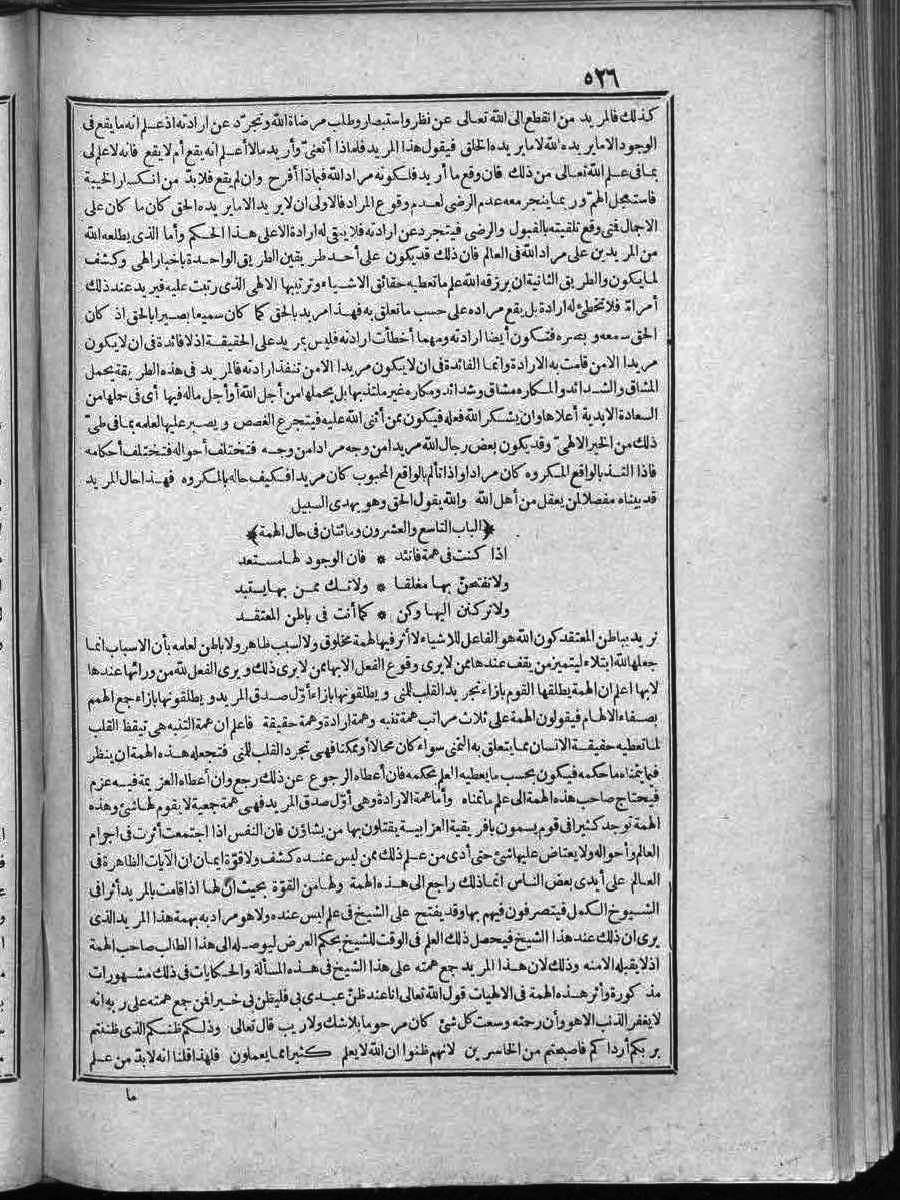 ٥٢٦
كذلك فالمريد من انقطع الى الله تعالى عن نظر واستبصار وطلب مرضاة الله وتجرّد عن ارادته اذ علم انه ما يقع فى
الوجود الا ما يريده الله لا ما يريده الخلق فيقول هذا المريد فلماذا أتعنى وأريد ما لا أعلم انه يقع أم لا يقع فانه لا علم لى
بما فى علم الله تعالى من ذلك فان وقع ما أريد فلكونه مراد الله فبماذا أفرح وان لم يقع فلا بدّ من انكسار الخيبة
فاستعجل الهمّ وربما ينجر معه عدم الرضى لعدم وقوع المراد فالاولى ان لا يريد الا ما يريده الحق كان ما كان على
الاجمال فتى وقع تلقيته بالقبول والرضى فيتجرد عن ارادته فلا يبقى له ارادة الا على هذا الحكم وأما الذى يطلعه الله
من المريدين على مراد الله فى العالم فان ذلك قد يكون على أحد طريقين الطريق الواحدة باخبار الهى وكشف
لما يكون والطريق الثانية ان يرزقه الله علم ما تعطيه حقائق الاشياء وترتيبها الالهى الذى رتبت عليه فيريد عند ذلك
أمرا تا فلا تخطئ له ارادة بل يقع مراده على حسب ما تعلق به فهذا مريد بالحق كما كان سميعا بصيرا بالحق اذ كان
الحق سمعه وبصره فتكون أيضا ارادته ومهما أخطأت ارادته فليس بمريد على الحقيقة اذ لا فائدة فى ان لا يكون
مريدا الا من قامت به الارادة وانما الفائدة فى ان لا يكون مريدا الا من تنفذ ارادته فالمريد فى هذه الطريقة يحمل
المشاق والشدائد والمكاره مشاق وشدائد ومكاره غير ملتذ بها بل يحملها من أجل الله أو أجل ما له فيها أى فى حملها من
السعادة الابدية أعلاها وان يشكر الله فعله فيكون ممن أثنى الله عليه فيتجرع الغصص ويصبر عليها لعلمه بما فى طىّ
ذلك من الخير الالهىّ وقد يكون بعض رجال الله مريدا من وجه مرادا من وجه فتختلف أحواله فتختلف أحكامه
فاذا التذ بالواقع المكروه كان مرادا واذا تألم بالواقع المحبوب كان مريدا فكيف حاله بالمكروه فهذا حال المريد
قد بيناه مفصلا لمن يعقل من أهل الله والله يقول الحق وهو يهدى السبيل
﴿الباب التاسع والعشرون ومائتان فى حال الهمة﴾
اذا كنت فى همة فاتئد * فان الوجود لها مستعد
ولا تفتحنّ بها مغلقا * ولا تك ممن بها يستبد
ولا تركنن اليها وكن * كما أنت فى باطن المعتقد
نريد بباطن المعتقد كون الله هو الفاعل للاشياء لا أثر فيها لهمة مخلوق ولا لسبب ظاهر ولا باطن لعلمه بأن الاسباب انما
جعلها الله ابتلاء ليتميز من يقف عندها ممن لا يرى وقوع الفعل الا بها ممن لا يرى ذلك ويرى الفعل لله من ورائها عندها
لا بها اعلم ان الهمة يطلقها القوم بازاء تجريد القلب للمنى ويطلقونها بازاء أوّل صدق المريد ويطلقونها بازاء جمع الهمم
بصفاء الالهام فيقولون الهمة على ثلاث مراتب همة تنبه وهمة ارادة وهمة حقيقة فاعلم ان همة التنبه هى تيقظ القلب
لما تعطيه حقيقة الانسان مما يتعلق به التمنى سواء كان محالا أو ممكنا فهى تجرد القلب للمنى فتجعله هذه الهمة ان ينظر
فيما يتمناه ما حكمه فيكون بحسب ما يعطيه العلم بحكمه فان أعطاه الرجوع عن ذلك رجع وان أعطاه العزيمة فيه عزم
فيحتاج صاحب هذه الهمة الى علم ما تمناه وأما همة الارادة وهى أوّل صدق المريد فهى همة جمعية لا يقوم لها شئ وهذه
الهمة توجد كثيرا فى قوم يسمون بافريقية العزابية يقتلون بها من يشاؤن فان النفس اذا اجتمعت أثرت فى اجرام
العالم وأحواله ولا يعتاض عليها شئ حتى أدى من علم ذلك ممن ليس عنده كشف ولا قوة ايمان ان الآيات الظاهرة فى
العالم على أيدى بعض الناس انما ذلك راجع الى هذه الهمة ولها من القوّة بحيث ان لها اذا قامت بالمريد أثرا فى
الشيوخ الكمل فيتصرفون فيهم بها وقد يفتح على الشيخ فى علم ليس عنده ولا هو مراد به بهمة هذا المريد الذى
يرى ان ذلك عند هذا الشيخ فيحصل ذلك العلم فى الوقت للشيخ بحكم العرض ليوصله الى هذا الطالب صاحب الهمة
اذ لا يقبله الا منه وذلك لان هذا المريد جمع همته على هذا الشيخ فى هذه المسألة والحكايات فى ذلك مشهورات
مذكورة وأثر هذه الهمة فى الالهيات قول الله تعالى انا عند ظنّ عبدى بى فليظن بى خيرا فمن جمع همته على ربه انه
لا يغفر الذنب الا هو وأن رحمته وسعت كل شئ كان مرحوما بلا شك ولا ريب قال تعالى وذلكم ظنكم الذى ظننتم
بربكم أرداكم فاصبحتم من الخاسرين لانهم ظنوا ان الله لا يعلم كثيرا مما يعملون فلهذا قلنا انه لا بدّ من علم
ما